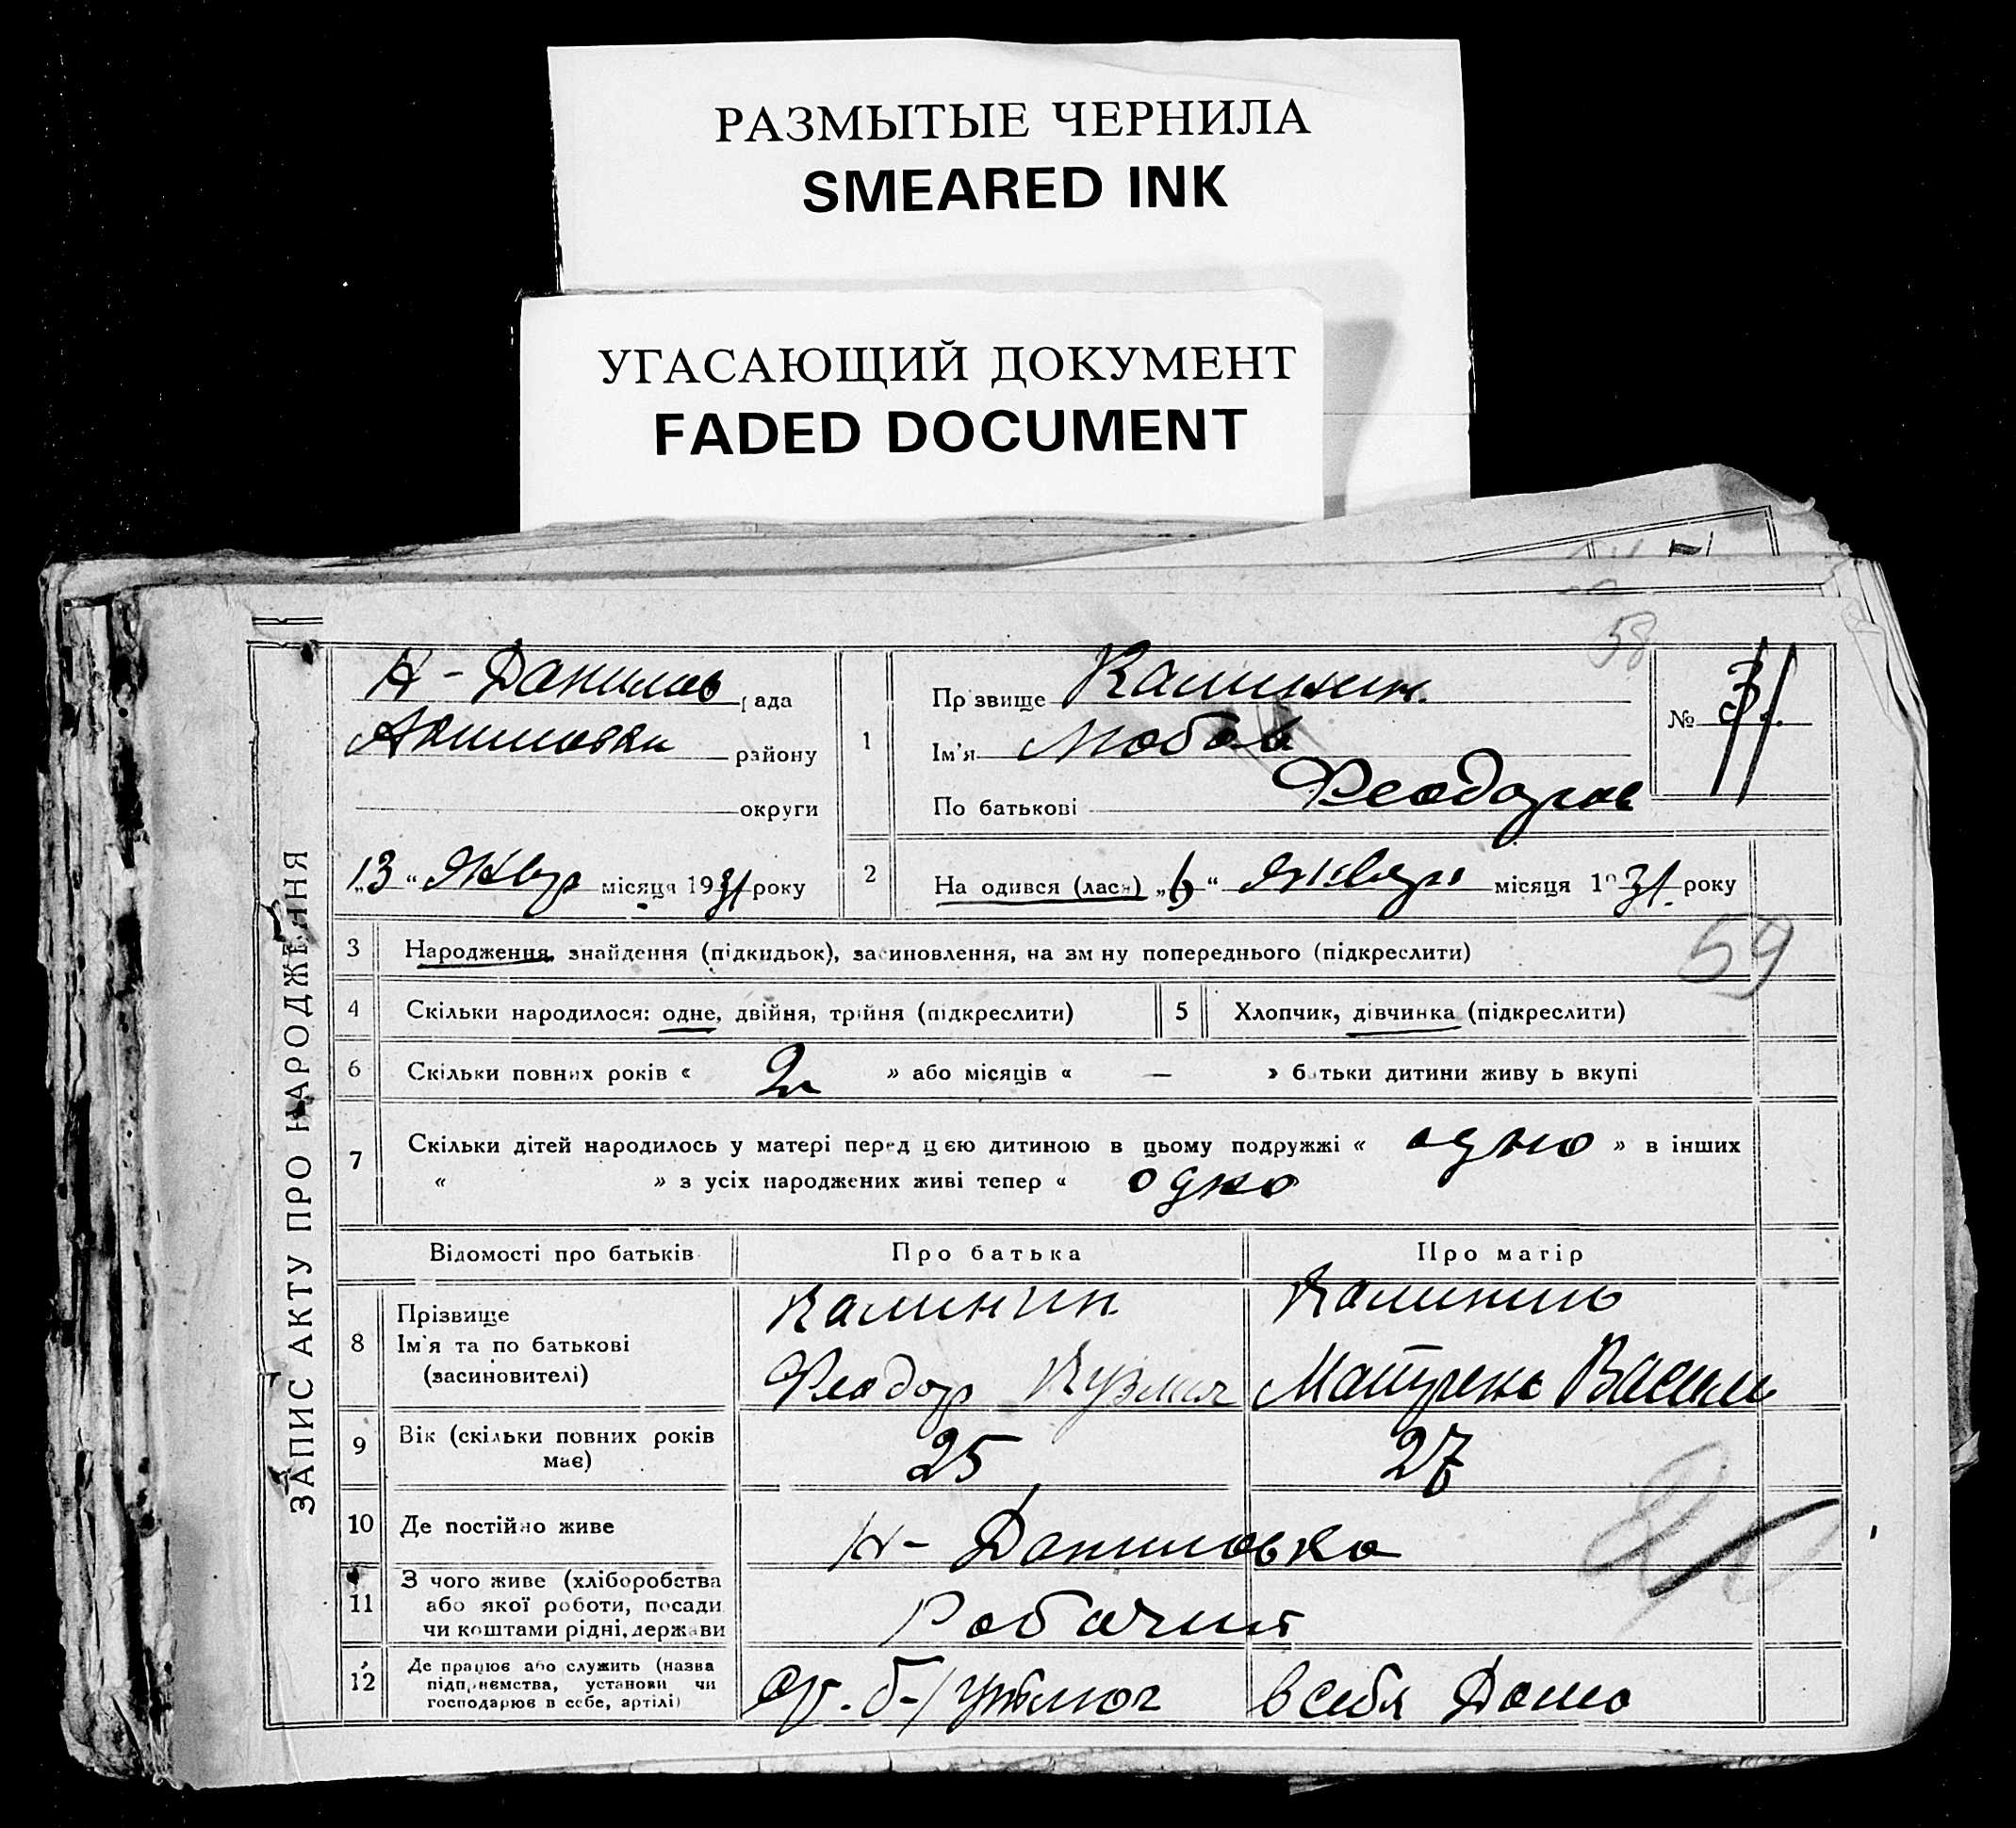 РАЗМЫТЫЕ ЧЕРНИЛА
SMEARED INK
УГАСАЮЩИЙ ДОКУМЕНТ
FADED DOCUMENT
58
ЗАПИС АКТУ ПРО НАРОДЖЕННЯ
Н-Данилов рада
Акимовки району
округи
„13“ Янвр місяця 1931 року
1
Прізвище Калинин.
Ім'я Любов
По батькові Феодоров
№ 31.
2
На одився (лася) „6“ Января місяця 1931. року
59
3 Народження, знайдення (підкидьок), засиновлення, на зм ну попереднього (підкреслити)
4 Скільки народилося: одне, двійня, трійня (підкреслити) 5 Хлопчик, дівчинка (підкреслити)
6 Скільки повних років « 2 » або місяців « — » батьки дитини живу ь вкупі
7 Скільки дітей народилось у матері перед цією дитиною в цьому подружжі « одно » в інших
« » з усіх народжених живі тепер « одно
Відомості про батьків Про батька Про матір
8 Прізвище
Ім'я та по батькові
(засиновителі)
Калинин
Феодор Кузмич
Калинин
Матрена Васил
9 Вік (скільки повних років має) 25 27
10 Де постійно живе Н-Даниловка
11 З чого живе (хліборобства
або якої роботи, посади
чи коштами рідні, держави
Рабочий
12 Де працює або служить (назва
підприємства, установи чи
господарює в себе, артілі)
в себя Дома